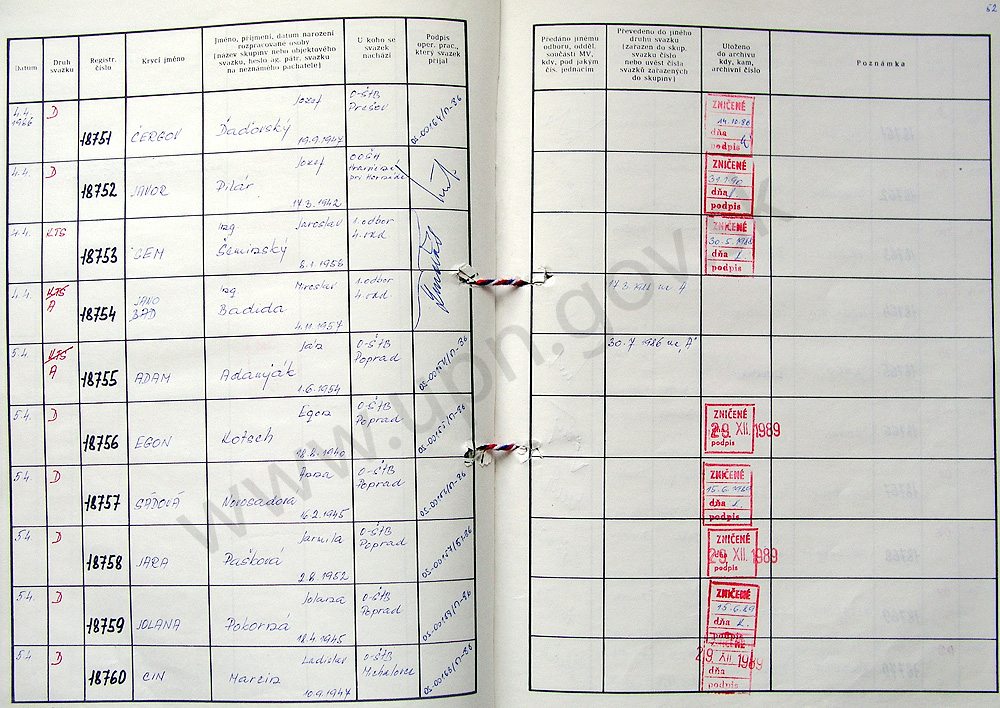 52
Datum
Druh svazku
Registr. číslo
Krycí jméno
Jméno, příjmení, datum narození rozpracované osoby (název skupiny nebo objektového svazku, heslo ag. pátr. svazku na neznámého pachatele)
U koho se svazek nachází
Podpis oper. prac., který svazek přijal
Předáno jinému odboru, odděl. součásti MV, kdy, pod jakým čís. jednacím
Převedeno do jiného druhu svazku (zařazen do skup. svazku číslo nebo uvést čísla svazků zařazených do skupiny)
Uloženo do archivu kdy, kam, archivní číslo
Poznámka
4.4. 1986 D 18751 ČERGOV Jozef Daďovský 19.9.1947 O-ŠTB Prešov OS-00164/17-86
ZNIČENÉ 14.10.86 dňa podpis
4.4. D 18752 JAVOR Jozef Pilár 17.3.1942 OOŠH
ZNIČENÉ dňa podpis
4.4. KTS 18753 CEM Ing Jaroslav Šeminský 8.1.1956 1.odbor 4.okd
ZNIČENÉ 30.5.1988 dňa podpis
4.4. KTS A 18754 JANO BAD Ing Miroslav Badida 4.11.1957 1.odbor 4.okd
5.4. KTS A 18755 ADAM Ján Adamják 1.6.1954 O-ŠTB Poprad
30.7 1986 na "A"
5.4. D 18756 EGON Egon Kotsch 18.4.1940 O-ŠTB Poprad
ZNIČENÉ 29. XII. 1989 dňa podpis
5.4. D 18757 SÁDOVÁ Anna Novosadová 16.2.1945 O-ŠTB Poprad
ZNIČENÉ 15.6.1989 dňa podpis
5.4 D 18758 JARA Jarmila Pašková 2.8.1952 O-ŠTB Poprad
ZNIČENÉ 29. XII. 1989 podpis
5.4. D 18759 JOLANA Jolana Pokorná 18.4.1945 O-ŠTB Poprad OS-00159/17-86
ZNIČENÉ 15.6.89 dňa podpis
5.4 D 18760 CIN Ladislav Marcin 10.9.1947 O-ŠTB Michalovce OS-00168/17-86
ZNIČENÉ 29. XII. 1989 dňa podpis
www.upn.gov.sk